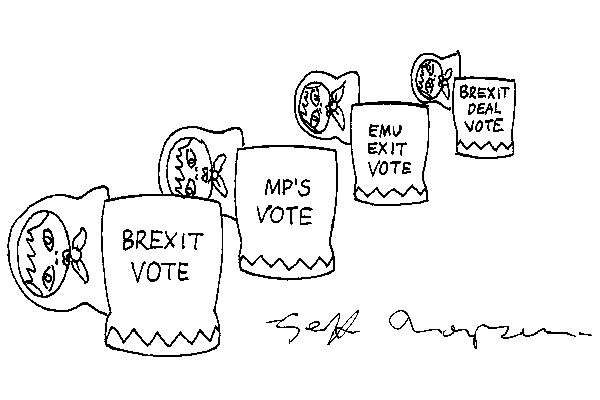 BREXIT
VOTE
MP'S
VOTE
EMU
EXIT
VOTE
BREXIT
DEAL
VOTE